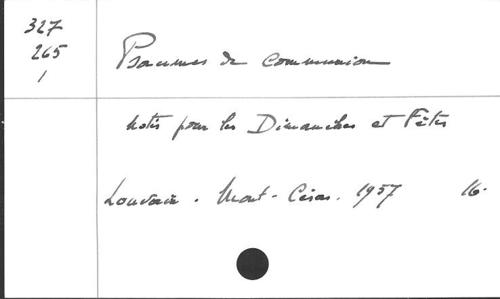 327
265
1
Psaumes de communion
Notes pour les Dimanches et Fêtes
Louvain. Mont-César. 1957 16.